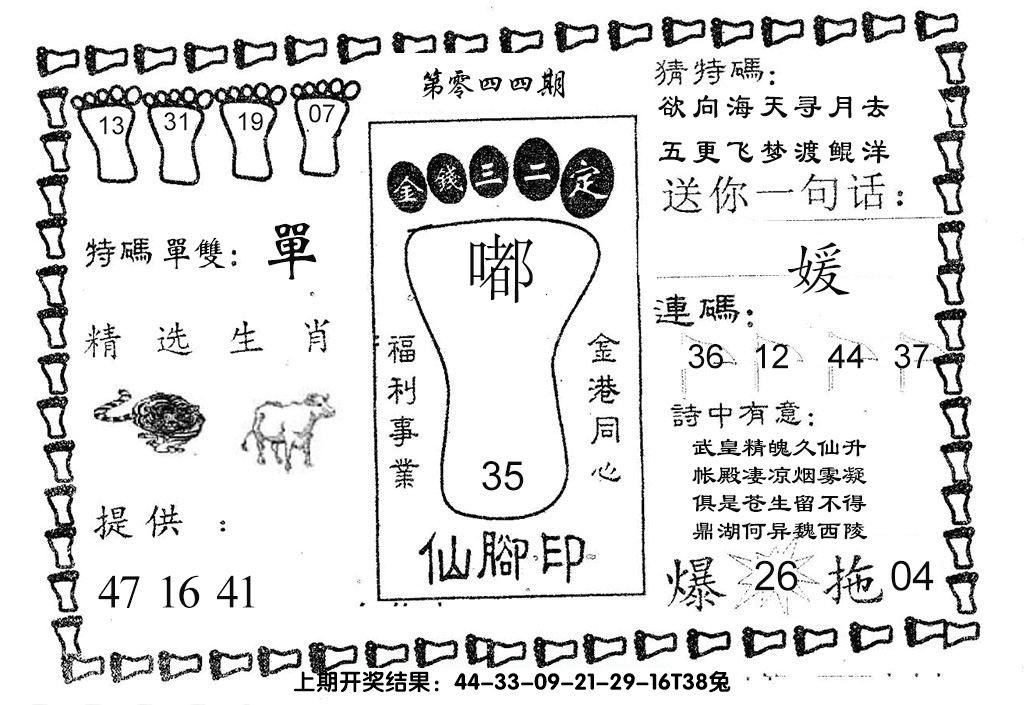 第零四四期
13 31 19 07
特碼單雙：單
精选生肖
提供：
47 16 41
金錢三二定
嘟
福利事業
金港同心
35
仙腳印
猜特碼：
欲向海天寻月去
五更飞梦渡鲲洋
送你一句话：
媛
連碼：
36 12 44 37
詩中有意：
武皇精魄久仙升
帐殿凄凉烟雾凝
俱是苍生留不得
鼎湖何异魏西陵
爆 26 拖 04
上期开奖结果：44-33-09-21-29-16T38兔